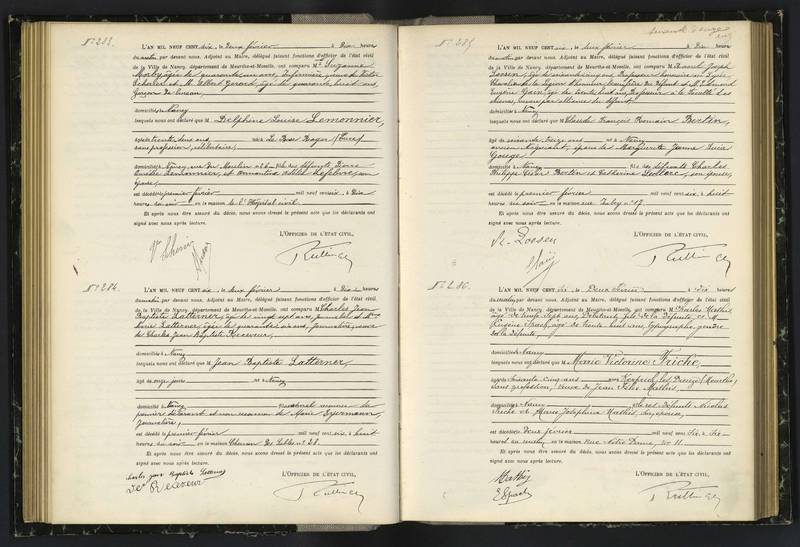 N° 283.
L'AN MIL NEUF CENT six, le deux février à Dix heures
du matin par devant nous, Adjoint au Maire, délégué faisant fonctions d'officier de l'état civil
de la Ville de Nancy, département de Meurthe-et-Moselle, ont comparu Mme Suzanne
âgée de quarante cinq ans, infirmière, veuve de Victor
Scherer et M. Albert Gérard, âgé de quarante huit ans,
garçon de bureau,
domiciliés à Nancy
lesquels nous ont déclaré que M Delphine Louise Lemonnier,
âgée de trente deux ans, née à Le Bosc Roger (Eure)
sans profession, célibataire,
domiciliée à Nancy, rue du Moulin n° fille des défunts Pierre
Lemonnier, et Lefebvre, son
épouse,
est décédée le premier février mil neuf cent six, à Dix
heures du soir en la maison de l'Hôpital civil
Et après nous être assuré du décès, nous avons dressé le présent acte que les déclarants ont
signé avec nous après lecture.
L'OFFICIER DE L'ÉTAT CIVIL,
Vve Scherer
N° 284.
L'AN MIL NEUF CENT six, le deux février à Dix heures
du matin par devant nous, Adjoint au Maire, délégué faisant fonctions d'officier de l'état civil
de la Ville de Nancy, département de Meurthe-et-Moselle, ont comparu M. Charles Jean
Baptiste Latterner, âgé de vingt sept ans, journalier et Mme
Marie Latterner, âgée de quarante six ans, journalière, veuve
de Charles Jean Baptiste Receveur,
domiciliés à Nancy
lesquels nous ont déclaré que M Jean Baptiste Latterner,
âgé de onze jours né à Nancy
domicilié à Nancy fils naturel reconnu du
premier déclarant et non reconnu de Marie
journalière,
est décédé le premier février mil neuf cent six, à huit
heures du soir en la maison Chemin des Sables n° 28.
Et après nous être assuré du décès, nous avons dressé le présent acte que les déclarants ont
signé avec nous après lecture.
L'OFFICIER DE L'ÉTAT CIVIL,
Charles Jean Baptiste Latterner
Receveur
N° 285
L'AN MIL NEUF CENT six, le deux février à Dix heures
du matin par devant nous, Adjoint au Maire, délégué faisant fonctions d'officier de l'état civil
de la Ville de Nancy, département de Meurthe-et-Moselle, ont comparu M. Joseph
âgé de soixante cinq ans, Professeur honoraire au Lycée,
Chevalier de la Légion d'honneur, du défunt et M. Edmond
Eugène Gain, âgé de trente huit ans, Professeur à la Faculté des
sciences, neveu par alliance du défunt,
domiciliés à Nancy
lesquels nous ont déclaré que M Claude François Romain Bertin,
âgé de soixante treize ans né à Nancy
ancien négociant, époux de Marguerite Jeanne Lucie
Gouge,
domicilié à Nancy fils des défunts Charles
Philippe Bertin et Catherine Leclerc, son épouse,
est décédé le premier février mil neuf cent six, à huit
heures du soir en la maison rue n° 17
Et après nous être assuré du décès, nous avons dressé le présent acte que les déclarants ont
signé avec nous après lecture.
L'OFFICIER DE L'ÉTAT CIVIL,
Gain
N° 286.
L'AN MIL NEUF CENT six, le Deux février à dix heures
du matin par devant nous, Adjoint au Maire, délégué faisant fonctions d'officier de l'état civil
de la Ville de Nancy, département de Meurthe-et-Moselle, ont comparu M. Charles Mathis,
âgé de ans, fils de la défunte et M.
Eugène Spach, âgé de trente huit ans, typographe, gendre
de la défunte,
domiciliés à Nancy
lesquels nous ont déclaré que M Marie Victorine Friche,
âgée de soixante cinq ans née Kerprich les Dieuze (Meurthe)
sans profession, veuve de Jean Félix Mathis,
domiciliée à Nancy fille des défunts Nicolas
Friche et Marie Joséphine Mathis, son épouse,
est décédée le deux février mil neuf cent six, à six
heures du matin en la maison rue Notre Dame, n° 11
Et après nous être assuré du décès, nous avons dressé le présent acte que les déclarants ont
signé avec nous après lecture.
L'OFFICIER DE L'ÉTAT CIVIL,
Mathis
E Spach